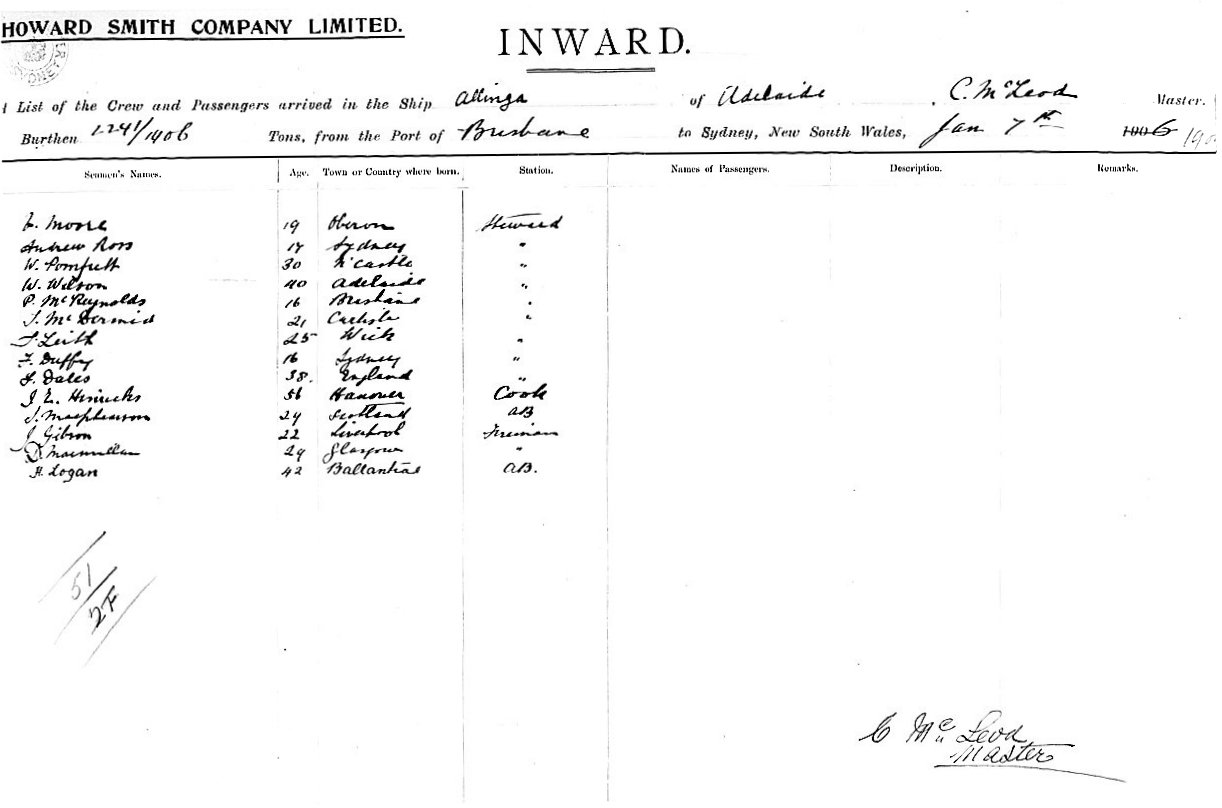 HOWARD SMITH COMPANY LIMITED.
INWARD.
List of the Crew and Passengers arrived in the Ship Allinga of Adelaide, C. McLeod Master.
Burthen 1241/1906 Tons, from the Port of Brisbane to Sydney, New South Wales, Jan 7th 6 190
Seamen's Names. Age. Town or Country where born. Station. Names of Passengers. Description. Remarks.
Moore 19 Oberon Steward
Andrew Ross Sydney "
W. Pomfrett 30 N'castle "
W. Wilson 40 Adelaide "
P. McReynolds 16 Brisbane "
J. McDermid 21 Carlisle "
Leith 25 Wick "
F. Duffy 16 Sydney "
Dales 38. England "
J. E. Hinricks 56 Hanover Cook
J. Macphearson 24 Scotland AB
J. Gibson 22 Liverpool Fireman
D. Macmillan 24 Glasgow "
H. Logan 42 Ballantrae AB.
51
27
C McLeod
Master